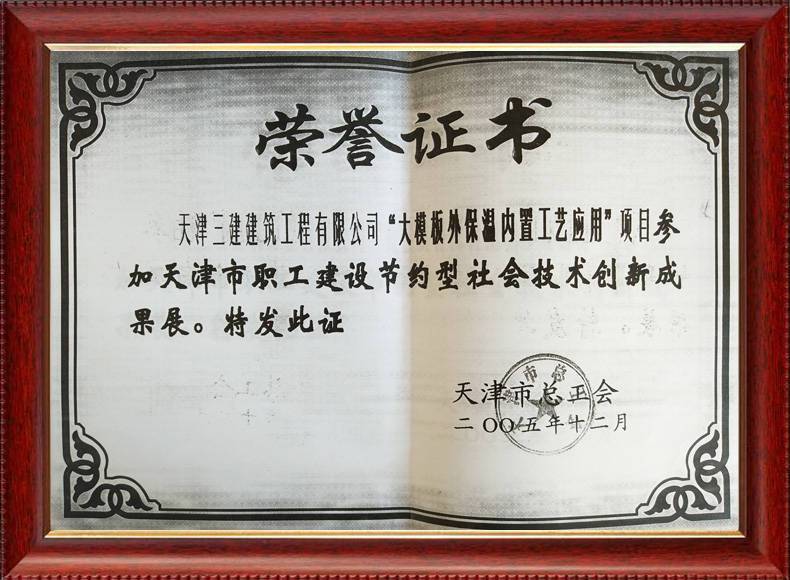 荣誉证书
天津三建建筑工程有限公司“大模板外保温内置工艺应用”项目参
加天津市职工建设节约型社会技术创新成
果展。特发此证
天津市总工会
二〇〇五年十二月